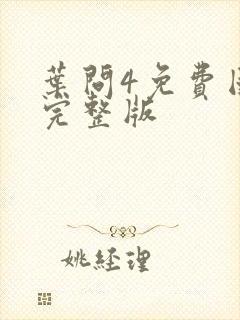 葉問4免費
完整版
姚經理